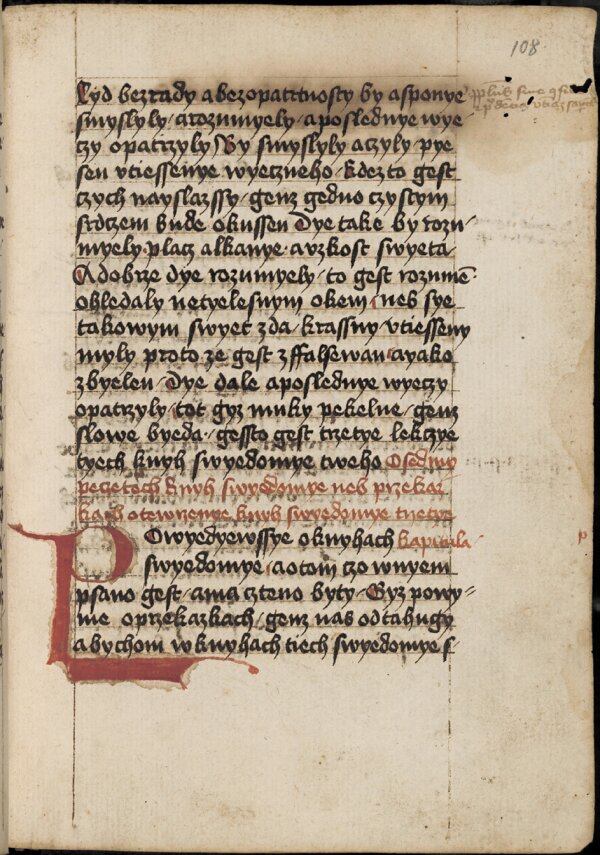 108
Lyd bezrady abezopatrtnosty by asponye
smyslyly · arozumyely · aposlednye wye
czy opatrzyly By smyslyly aczyly · pye
sen vtiessenye wyeczneho · kdezto gest
czych nayslazssy · genz gedno czystym
srdczem bude okussen Dye take by rozu
myely · placz alkanye · avzkost swyeta ·
A dobrze dye rozumyely · to gest rozumē
ohledaly netyelesnym okem · neb sye
takowym swyet zda · krassny · vtiesseny
myly proto ze gest zffalsewan · ayako
zbyelen · Dye dale aposlednye wyeczy
opatrzyly · tot gyz muky pekelne · genz
slowe byeda · gessto gest trzetye lekczye
tyech knyh swyedomye tweho Osedmy
peczetech knyh swyedomye neb przekaz
kach otewrzenye knyh swyedomye trzetye
Powyedyewssye oknyhach kapitula
swyedomye · aotom czo wnyem
psano gest · ama czteno byty · Gyz powy=
me oprzekazkach · genz nas odtahugy
abychom wknyhach tiech swyedomye s